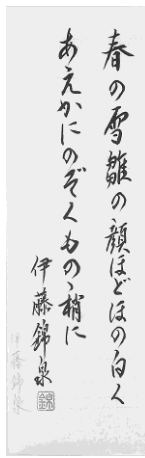 春の雪雛の顔ほどほの白く
あえかにのぞくもの梢に
伊藤錦泉
伊藤錦泉
錦